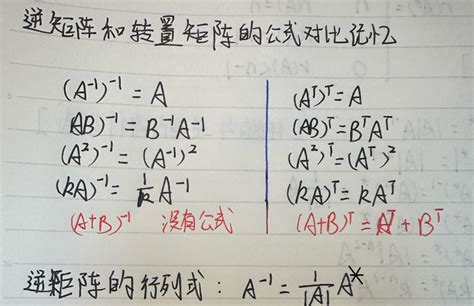 逆矩阵和转置矩阵的公式对比记忆
(A⁻¹)⁻¹ = A
AB)⁻¹ = B⁻¹A⁻¹
(A²)⁻¹ = (A⁻¹)²
(kA)⁻¹ = 1/k A⁻¹
(A+B)⁻¹ 没有公式
(Aᵀ)ᵀ = A
(AB)ᵀ = BᵀAᵀ
(A²)ᵀ = (Aᵀ)²
(kA)ᵀ = kAᵀ
(A+B)ᵀ = Aᵀ + Bᵀ
逆矩阵的行列式: A⁻¹ = 1/|A| A*